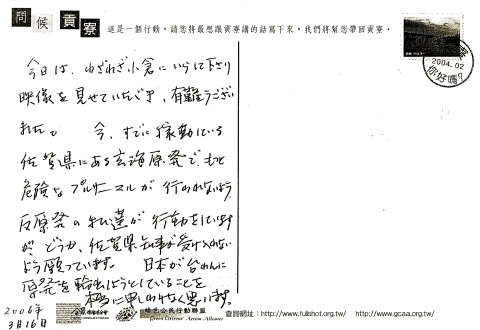 問候貢寮
這是一個行動，請您將最想跟貢寮講的話寫下來，我們將幫您帶回貢寮。
2004.02
你好嗎？
今日は、わざわざ小倉にいらして下さり
映像を見せていただき、有難うござい
ました。 今、すでに稼動している
佐賀県にある玄海原発で、もっと
危険なプルサーマルが行われないよう、
反原発の私達が行動をしています
が、どうか、佐賀県知事が受け入れない
よう願っています。 日本が台わんに
原発を輸出しようとしていることを
本当に申しわけなく思います。
2006年
3月16日
綠色公民行動聯盟
Green Citizens' Action Alliance
查詢網址：http://www.fullshot.org.tw/ http://www.gcaa.org.tw/